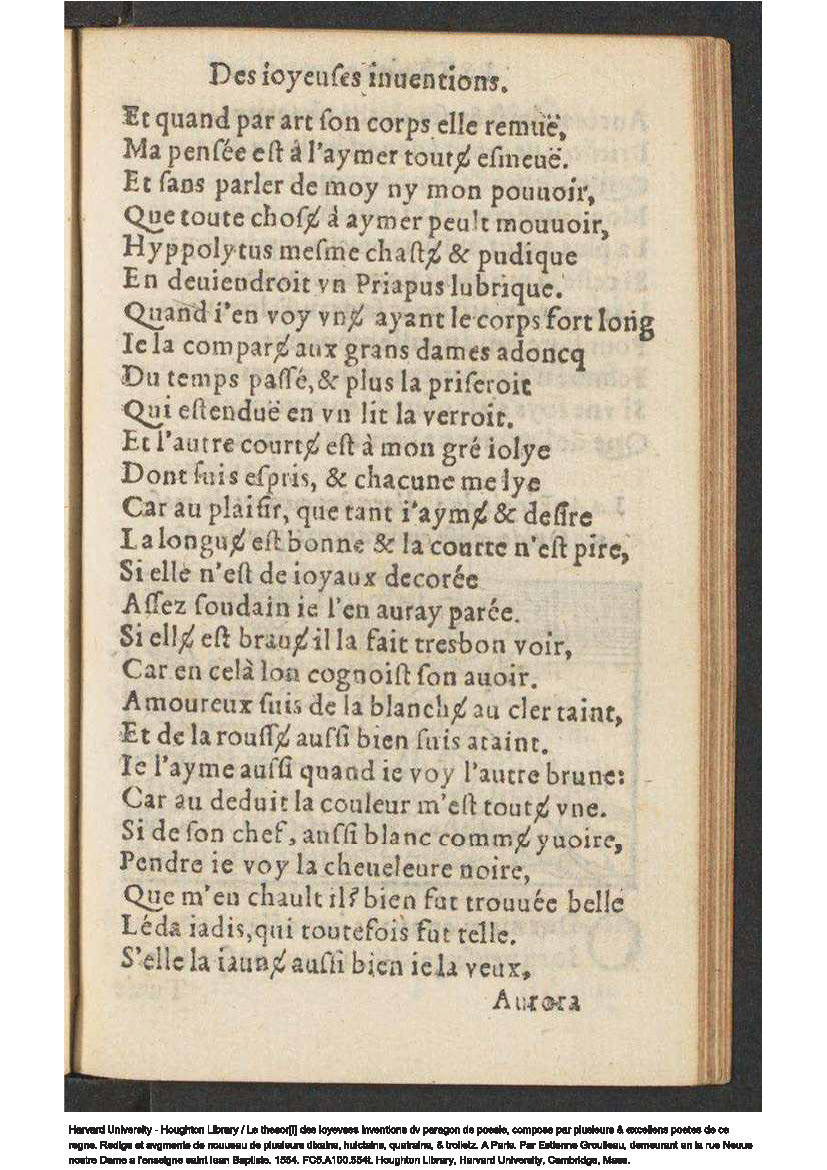 Des ioyeuſes inuentions.
Et quand par art ſon corps elle remuë,
Ma penſée eſt à l'aymer toutɇ eſmeuë.
Et ſans parler de moy ny mon pouuoir,
Que toute choſɇ à aymer peult mouuoir,
Hyppolytus meſme chaſtɇ & pudique
En deuiendroit vn Priapus lubrique.
Quand i'en voy vnɇ ayant le corps fort long
Ie la comparɇ aux grans dames adoncq
Du temps paſſé, & plus la priſeroit
Qui eſtenduë en vn lit la verroit.
Et l'autre courtɇ eſt à mon gré iolye
Dont ſuis eſpris, & chacune me lye
Car au plaiſir, que tant i'aymɇ & deſire
La longuɇ eſt bonne & la courte n'eſt pire,
Si elle n'eſt de ioyaux decorée
Aſſez ſoudain ie l'en auray parée.
Si ellɇ eſt brauɇ il la fait tresbon voir,
Car en celà lon cognoiſt ſon auoir.
Amoureux ſuis de la blanchɇ au cler taint,
Et de la rouſſɇ auſſi bien ſuis ataint.
Ie l'ayme auſſi quand ie voy l'autre brune:
Car au deduit la couleur m'eſt toutɇ vne.
Si de ſon chef, auſſi blanc commɇ yuoire,
Pendre ie voy la cheueleure noire,
Que m'en chault il? bien fut trouuée belle
Léda iadis, qui toutefois fut telle.
S'elle la iaunɇ auſſi bien ie la veux,
Aurora
Harvard University - Houghton Library / Le thesor[i] des ioyevses inventions dv paragon de poesie, compose par plusieurs & excellens poetes de ce
regne. Redige et avgmente de nouueau de plusieurs dixains, huictains, quatrains, & trioletz. A Paris. Par Estienne Groulleau, demeurant en la rue Neuue
nostre Dame a l'enseigne saint Iean Baptiste. 1554. FC5.A100.554t. Houghton Library, Harvard University, Cambridge, Mass.